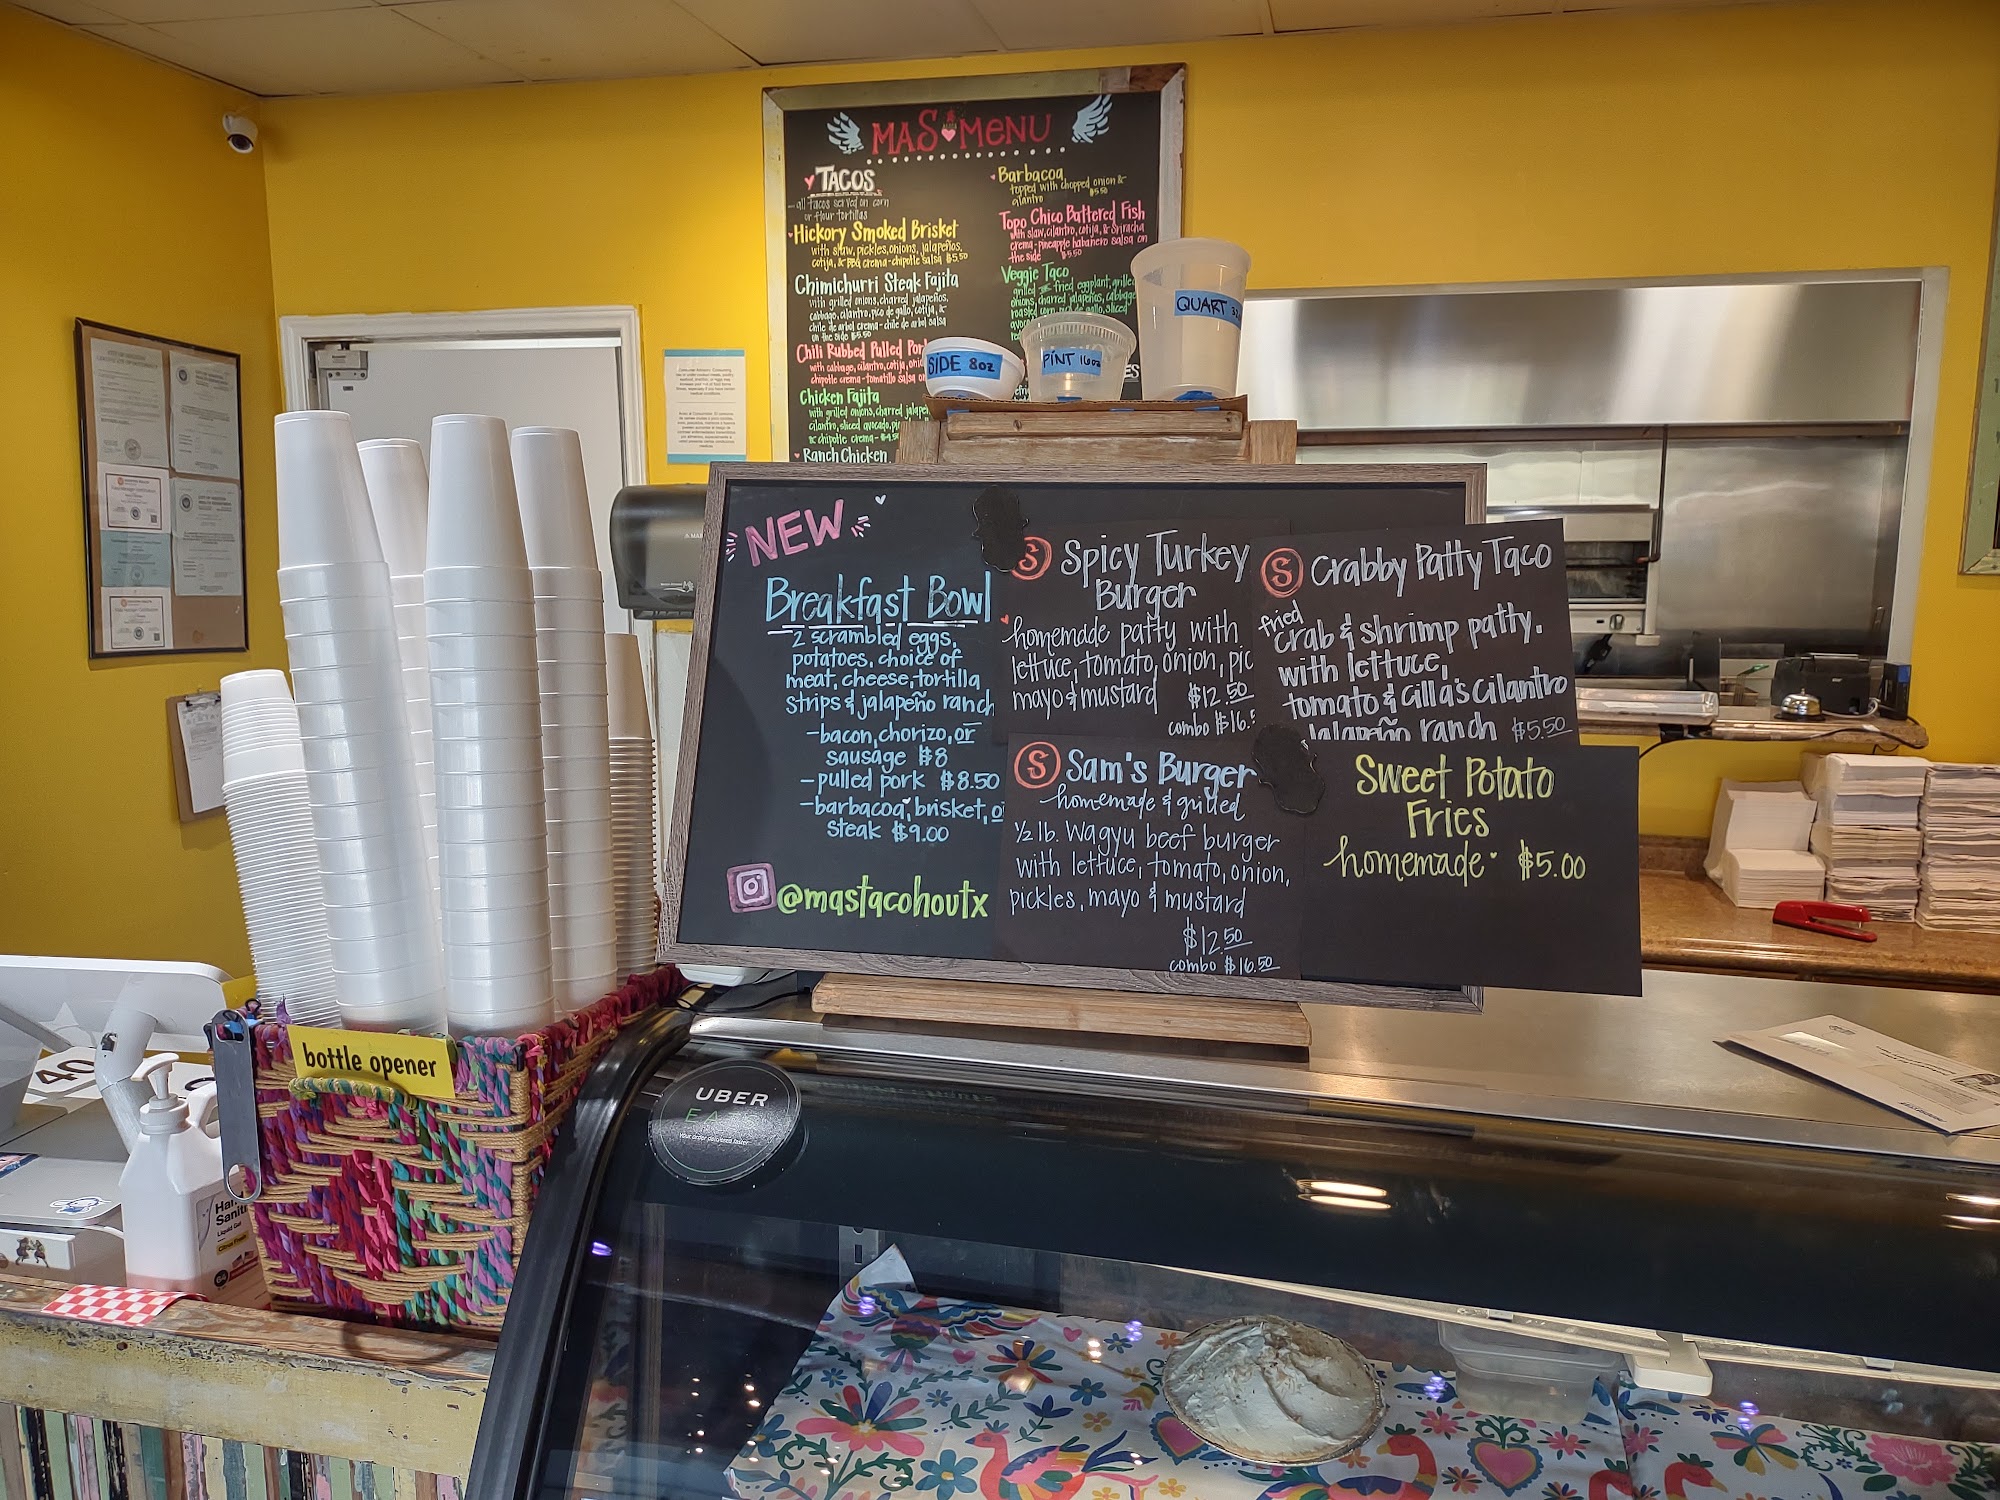 MAS MENU
TACOS
all tacos served on corn
or flour tortillas
Hickory Smoked Brisket
with slaw, pickles, onions, jalapeños,
cotija, & BBQ crema-chipotle salsa $5.50
Chimichurri Steak Fajita
with grilled onions, charred jalapeños,
cabbage, cilantro, pico de gallo, cotija, &
chile de arbol crema-chile de arbol salsa
on the side $5.50
Chili Rubbed Pulled Por
with cabbage, cilantro, cotija,
chipotle crema-tomatillo salsa
Chicken Fajita
with grilled onions, charred
cilantro, sliced avocado,
& chipotle crema-
Ranch Chicken
Barbacoa
topped with chopped onion &
cilantro $5.50
Topo Chico Battered Fish
with slaw, cilantro, cotija, & Sriracha
crema-pineapple habanero salsa on
the side $5.50
Veggie Taco
grilled fried eggplant, grille
onions, charred jalapeños, cabbage
roasted corn, pico de gallo, sliced
ES
SIDE 8oz
PINT 16oz
QUART
NEW
Breakfast Bowl
2 scrambled eggs,
potatoes, choice of
meat, cheese, tortilla
strips & jalapeño ranch
-bacon, chorizo, or
sausage $8
-pulled pork $8.50
-barbacoa, brisket, o
steak $9.00
@mastacohoutx
S Spicy Turkey
Burger
homemade patty with
lettuce, tomato, onion, pic
mayo & mustard $12.50
combo $16.5
S Sam's Burger
homemade & grilled
1/2 lb. Wagyu beef burger
with lettuce, tomato, onion,
pickles, mayo & mustard
$12.50
combo $16.50
S Crabby Patty Taco
fried
crab & shrimp patty.
with lettuce,
tomato & Cilla's cilantro
jalapeño ranch $5.50
Sweet Potato
Fries
homemade $5.00
bottle opener
UBER
EA
Your order delivered faster
Han
Saniti
Liquid Gel
Citrus Fresh
40